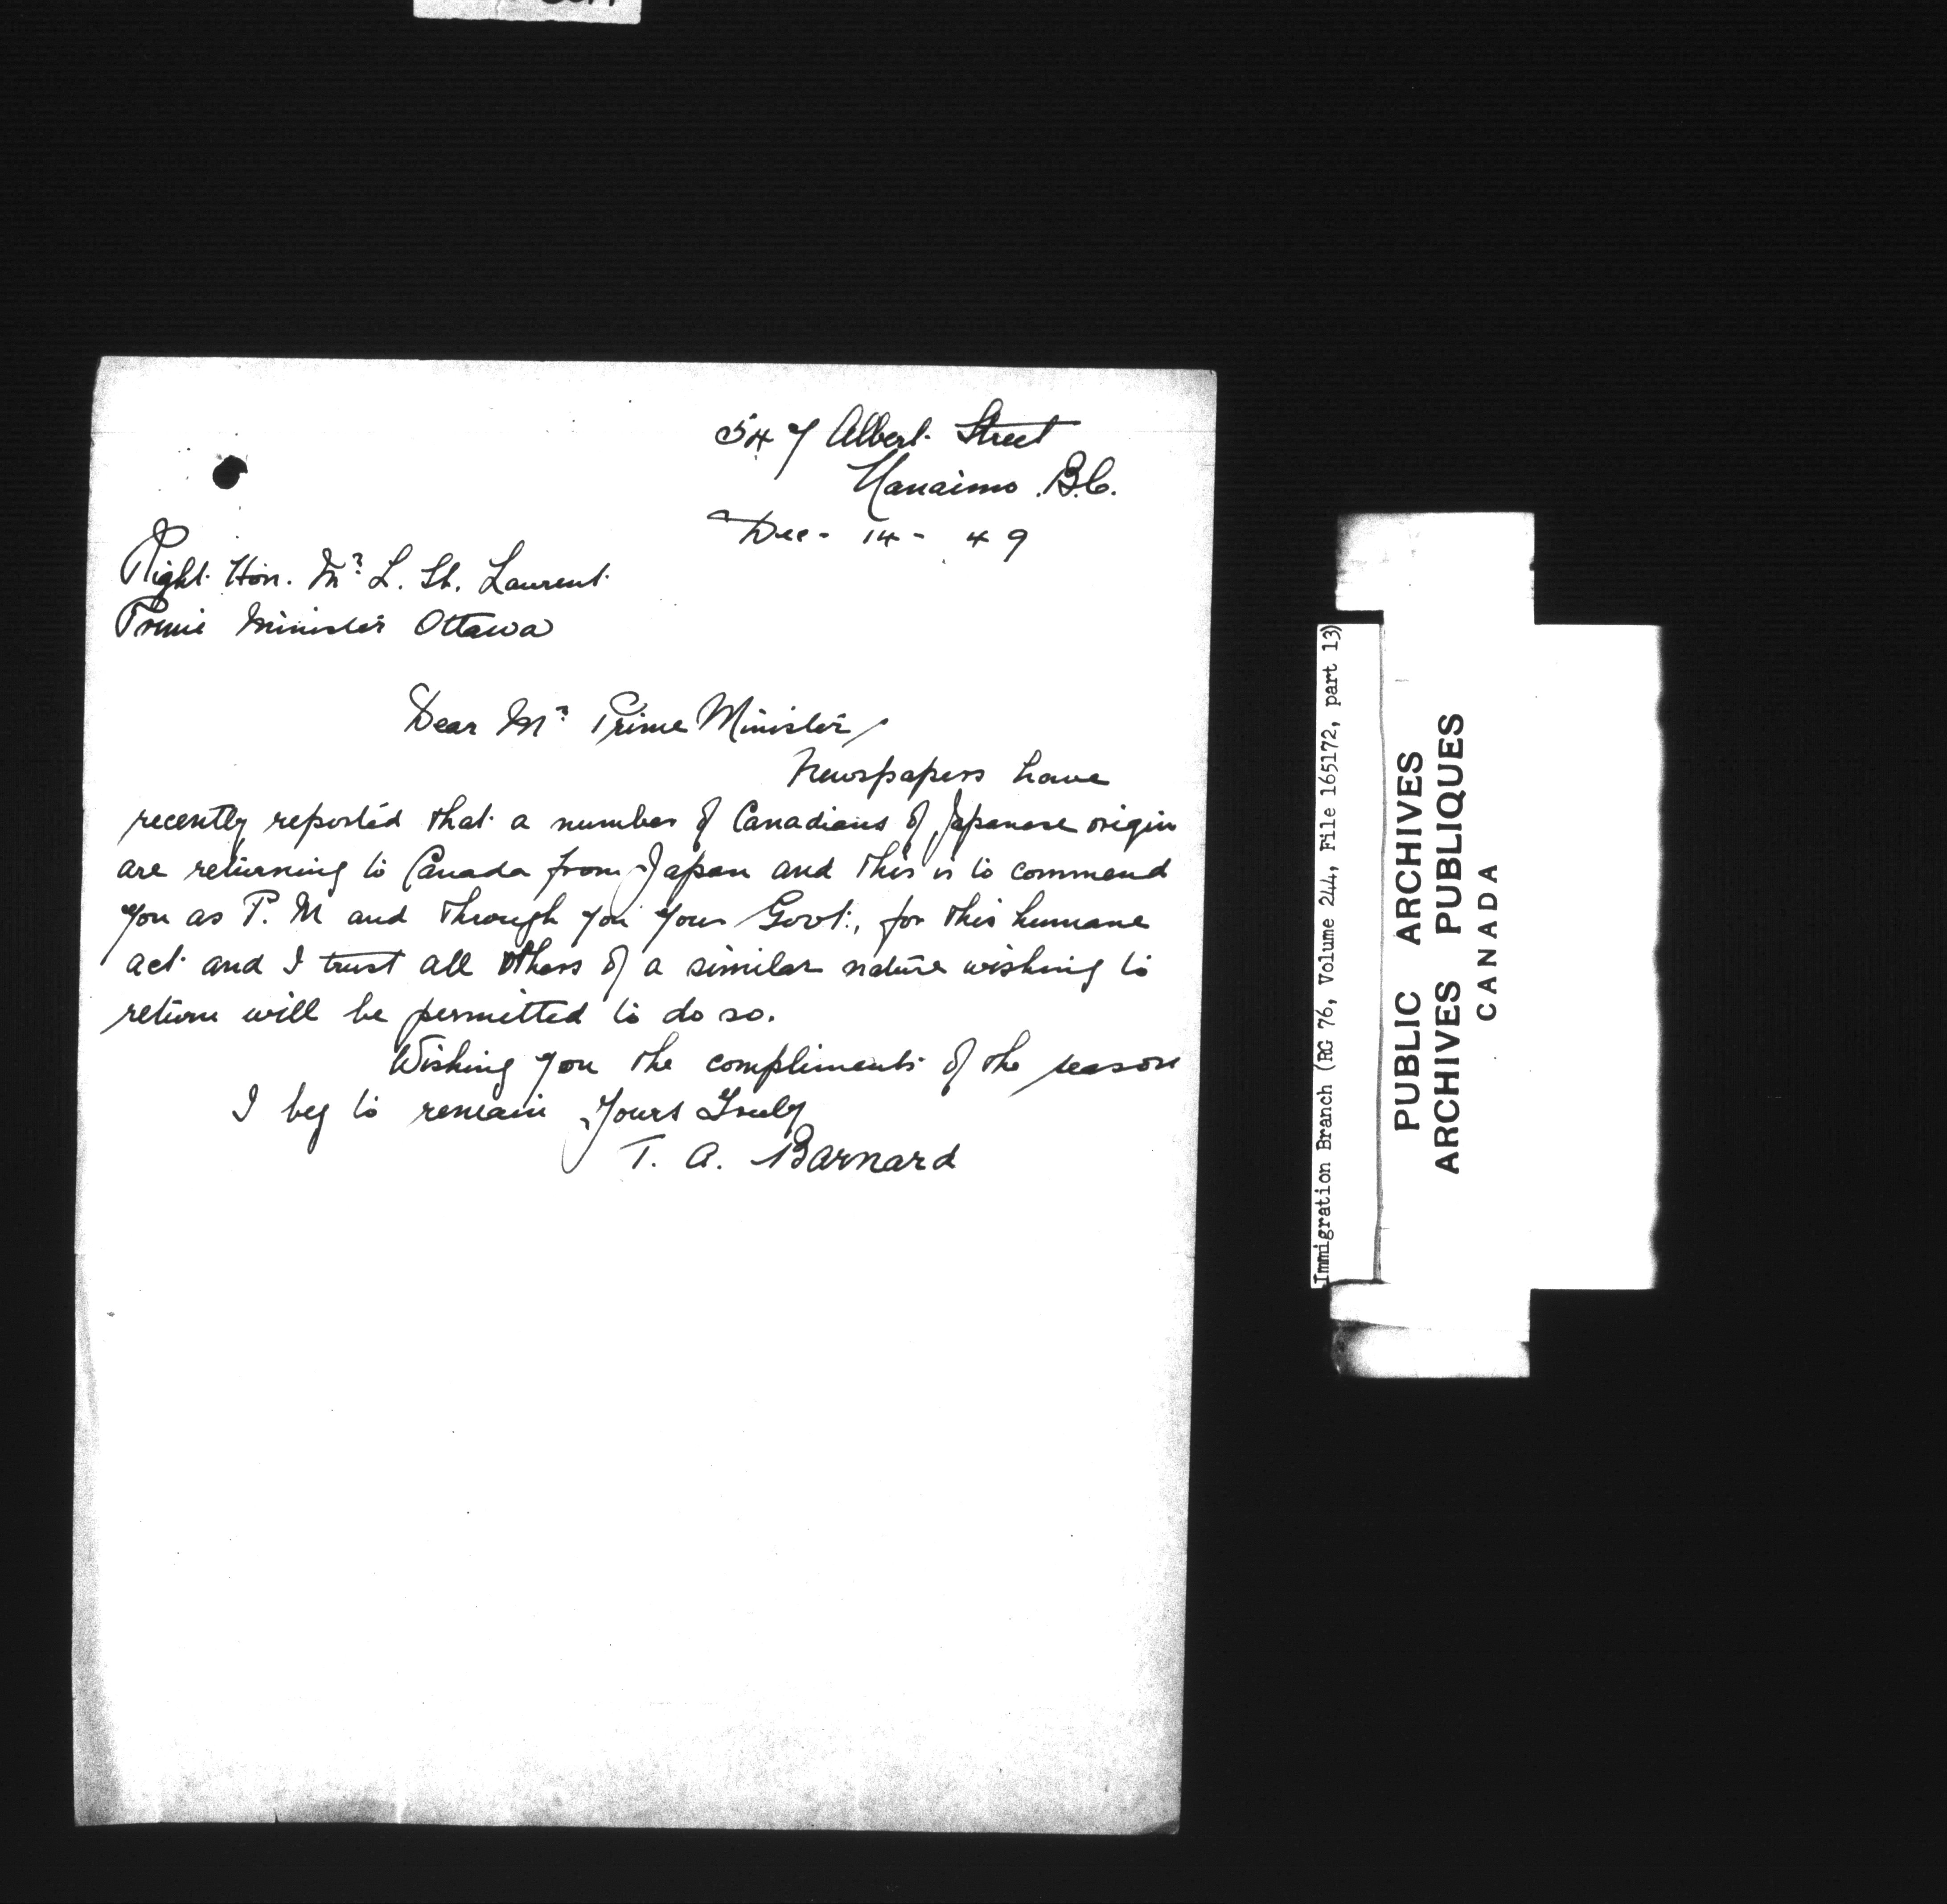 547 Albert Street
Nanaimo B.C.
Dec - 14 - 49
Right Hon. Mr L. St. Laurent
Prime Minister Ottawa
Dear Mr Prime Minister,
Newspapers have
recently reported that a number of Canadians of Japanese origin
are returning to Canada from Japan and this is to commend
you as P. M and through you your Govt., for this humane
act and I trust all others of a similar nature wishing to
return will be permitted to do so.
Wishing you the compliments of the season
I beg to remain Yours Truly
T. A. Barnard
Immigration Branch (RG 76, Volume 244, File 165172, part 13)
PUBLIC ARCHIVES
ARCHIVES PUBLIQUES
CANADA